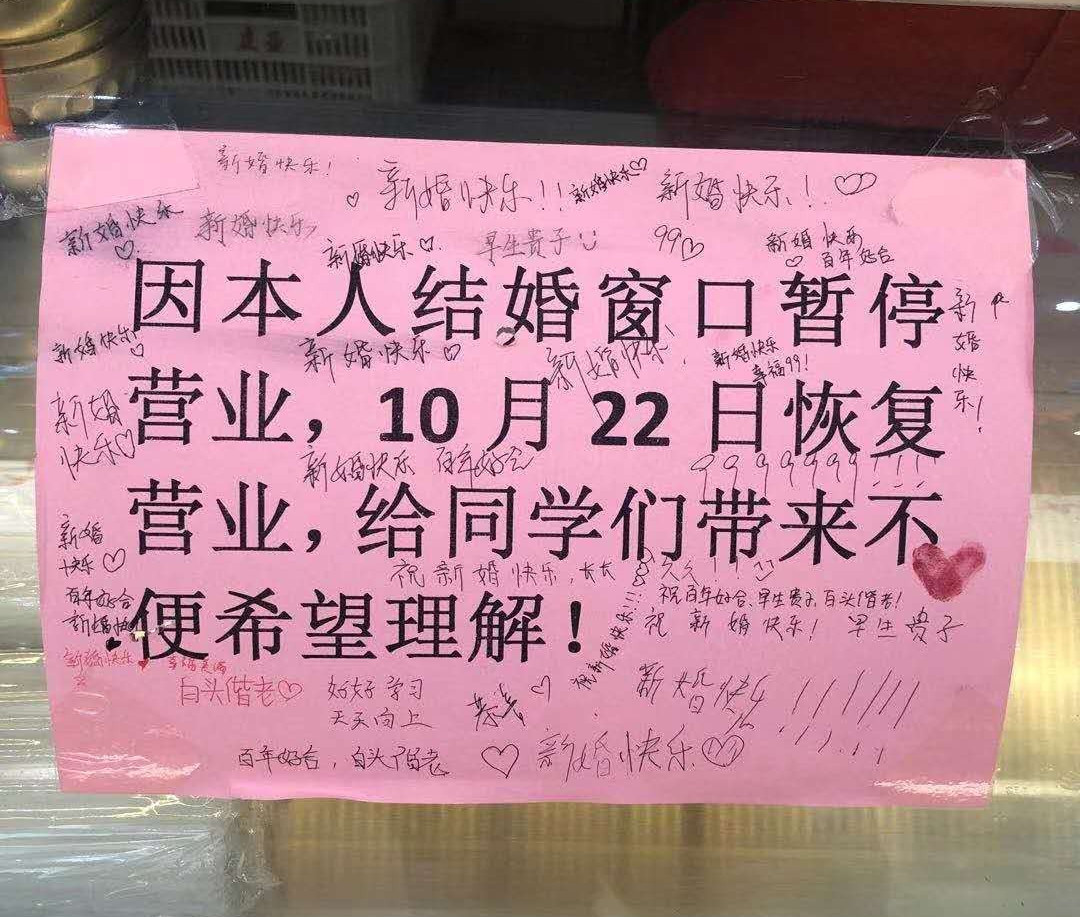 新婚快乐!
新婚快乐!!
新婚快乐
新婚快乐!
新婚快乐
新婚快乐
新婚快乐
早生贵子
99
新婚快乐
百年好合
因本人结婚窗口暂停
新婚快乐!
新婚快乐
新婚快乐
新婚快乐
新婚快乐
幸福99!
营业，10月22日恢复
新婚
快乐
新婚快乐 百年好合
99999999!!!
营业，给同学们带来不
新婚
快乐
祝新婚快乐，长长久久!!!
百年好合
祝百年好合、早生贵子、白头偕老!
便希望理解！
祝新婚快乐!!!
祝新婚快乐! 早生贵子
新婚快乐
幸福美满
白头偕老
好好学习
天天向上
恭喜
新婚快乐!!!!!!!
百年好合，白头偕老
新婚快乐